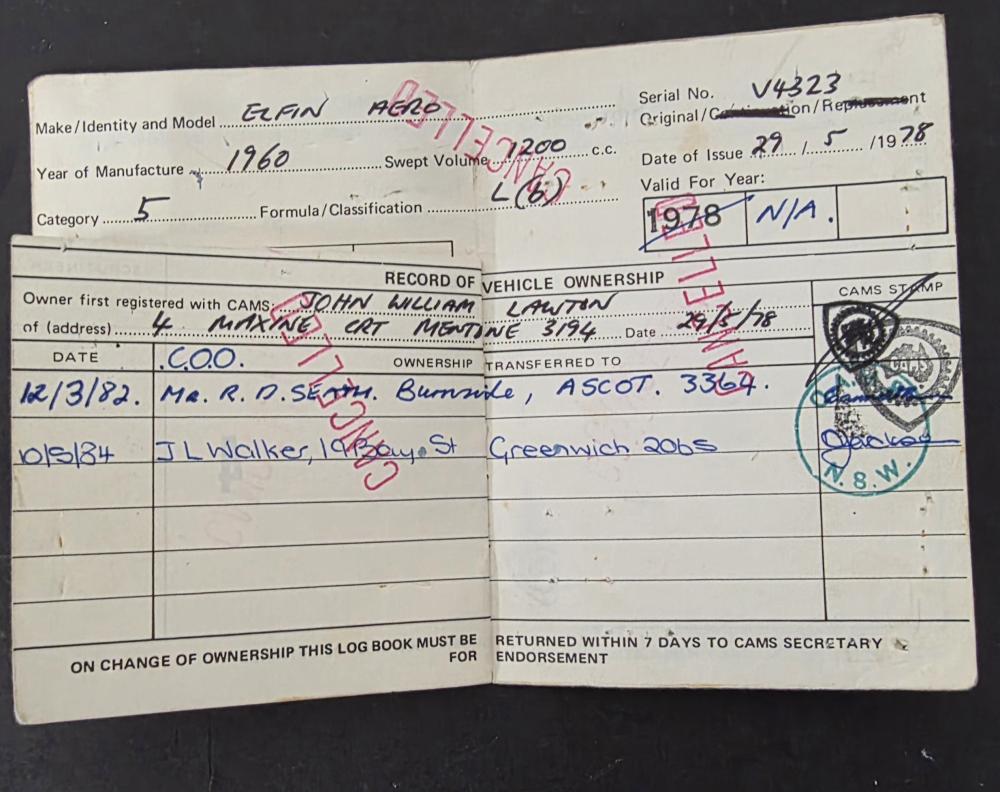 Make/Identity and Model ELFIN AERO
Serial No. V4323
Original/ /Replacement
Year of Manufacture 1960 Swept Volume 1200 c.c.
Date of Issue 29 / 5 / 1978
Category 5 Formula/Classification L(b)
Valid For Year:
1978 N/A.
CANCELLED
CANCELLED
CANCELLED
RECORD OF VEHICLE OWNERSHIP
Owner first registered with CAMS: JOHN WILLIAM LAWTON
CAMS STAMP
of (address) 4 MAXINE CRT MENTONE 3194 Date 29/5/78
DATE C.O.O. OWNERSHIP TRANSFERRED TO
CAMS
12/3/82. MR. R. D. Burnside, ASCOT. 3364.
10/5/84 J L Walker, St Greenwich 2065
N.S.W.
ON CHANGE OF OWNERSHIP THIS LOG BOOK MUST BE RETURNED WITHIN 7 DAYS TO CAMS SECRETARY
FOR ENDORSEMENT